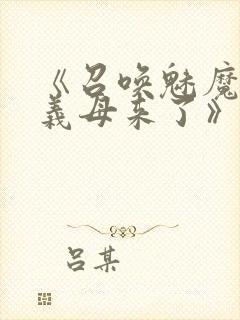 《召唤魅魔
義母来了》
吕某